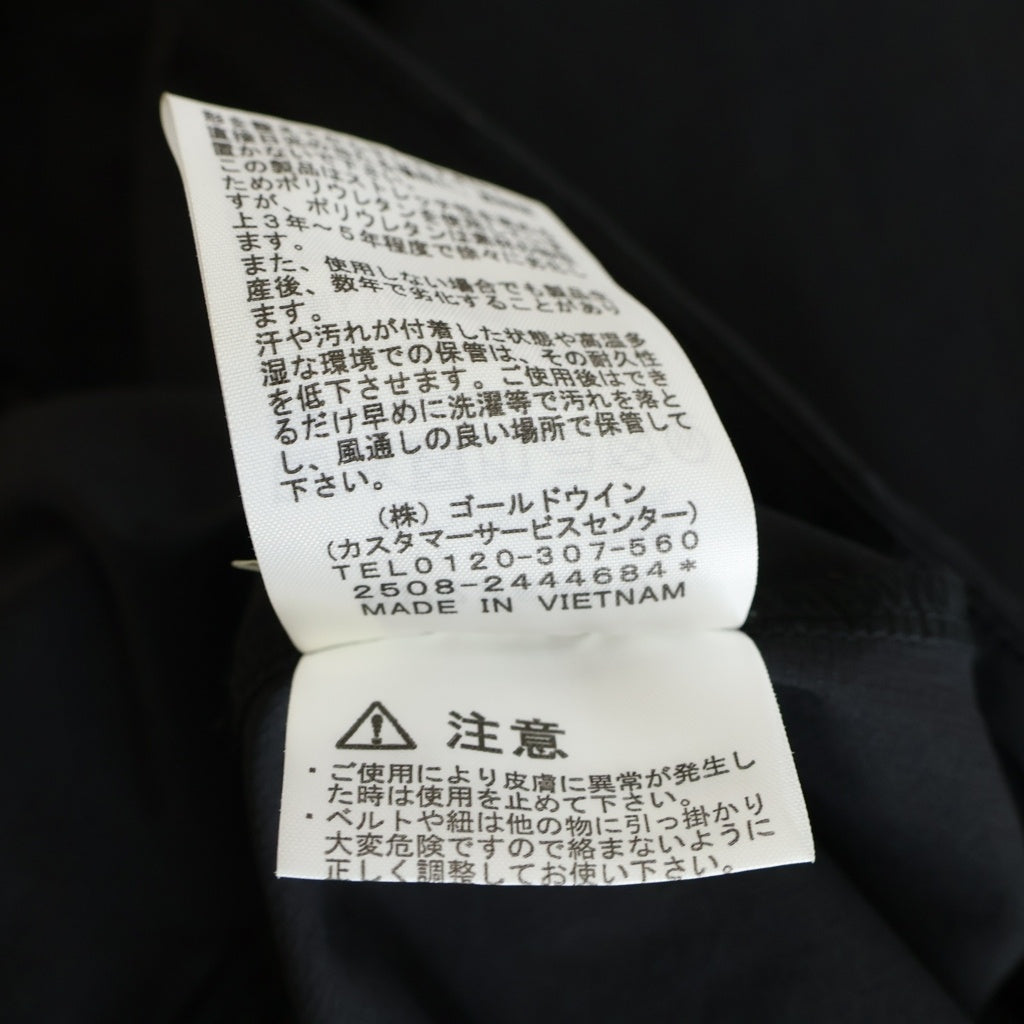 この製品はストレッチ
ためポリウレタンを使用
すが、ポリウレタンは素材の
上３年～５年程度で徐々に劣化し
ます。
また、使用しない場合でも製品生
産後、数年で劣化することがあり
ます。
汗や汚れが付着した状態や高温多
湿な環境での保管は、その耐久性
を低下させます。ご使用後はでき
るだけ早めに洗濯等で汚れを落と
し、風通しの良い場所で保管して
下さい。
（株）ゴールドウイン
（カスタマーサービスセンター）
ＴＥＬ０１２０-３０７-５６０
２５０８-２４４４６８４＊
MADE IN VIETNAM
注意
・ご使用により皮膚に異常が発生し
た時は使用を止めて下さい。
・ベルトや紐は他の物に引っ掛かり
大変危険ですので絡まないように
正しく調整してお使い下さい。